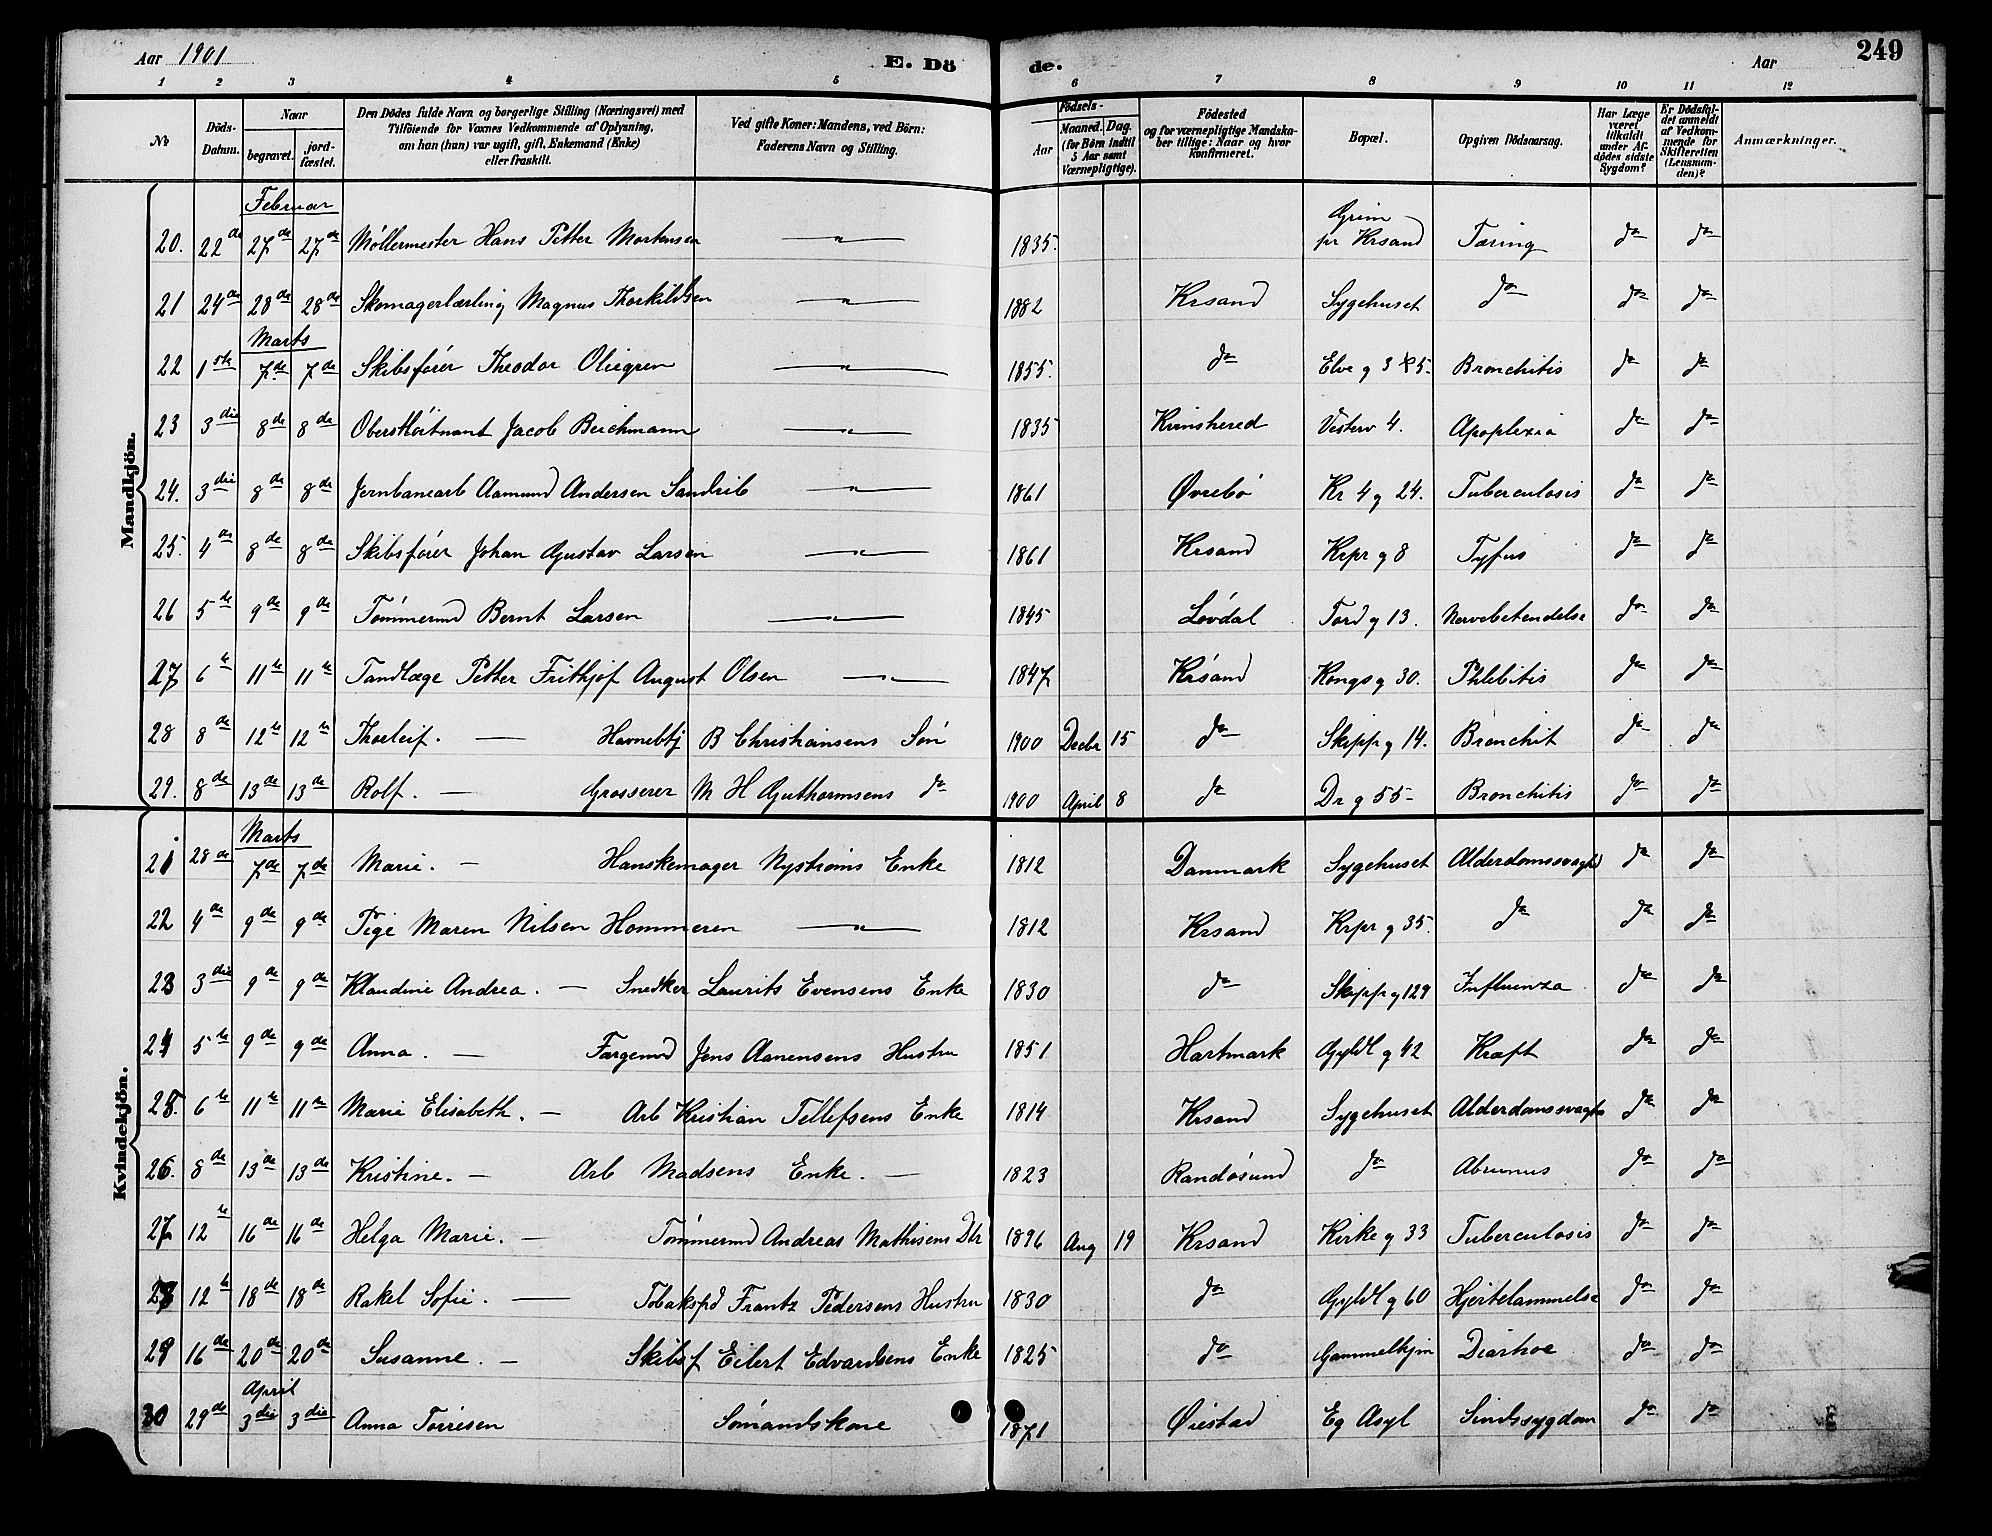 Aar 1901 E. Dö de. Aar 249
1 2 3 4 5 6 7 8 9 10 11 12
No Döds-Datum. Naar begravet. jord-fæstet. Den Dödes fulde Navn og borgerlige Stilling (Næringsvei) med Tilföiende for Voxnes Vedkommende af Oplysning, om han (hun) var ugift, gift, Enkemand (Enke) eller fraskilt. Ved gifte Koner: Mandens, ved Börn: Faderens Navn og Stilling. Aar Födsels- Maaned. Dag. (for Børn indtil 5 Aar samt Værnepligtige). Födested og for værnepligtige Mandska-ber tillige: Naar og hvor konfirmeret. Bopæl. Opgiven Dödsaarsag. Har Læge været tilkaldt under Af-dödes sidste Sygdom? Er Dödsfal-det anmeldt af Vedkom-mende for Skifteretten (Lensman-den)? Anmærkninger.
Mandkjön.
Februar
20. 22de 27de 27de Møllermester Hans Petter Mortensen " 1835. Grim pr Krsand Tæring Ja Ja
21 24de 28de 28de Skomagerlærling Magnus Thorkildsen " 1882 Krsand Sygehuset do Ja Ja
Marts
22 1ste 7de 7de Skibsfører Theodor Oliegren " 1855. do Elve g 35. Bronchitis Ja Ja
23 3die 8de 8de Oberstløitnant Jacob Beichmann " 1835 Vesterv 4. Apoplexia Ja Ja
24. 3die 8de 8de Jernbanearb Aamund Andersen Sandrib " 1861 Øvrebø Kr 4 g 24. Tuberculosis Ja Ja
25. 4de 8de 8de Skibsfører Johan Gustav Larsen " 1861 Krsand Krpr g 8 Tyfus Ja Ja
26 5te 9de 9de Tømmermd Bernt Larsen " 1845 Løvdal Tord g 13. Nervebetendelse Ja Ja
27 6te 11te 11te Tandlæge Petter Frithjof August Olsen " 1847 Krsand Kongs g 30. Phlebitis Ja Ja
28 8de 12te 12te Thorleif. — Havnebtj B Christiansens Søn 1900 Decbr 15 do Skippr g 14. Bronchit Ja Ja
29. 8de 13de 13de Rolf. — Grosserer M H Guthormsens do 1900 April 8 do Dr g 55 Bronchitis Ja Ja
Kvindekjön.
Marts
21 28de 7de 7de Marie. — Hanskemager Nystrøms Enke 1812 Danmark Sygehuset Alderdomssvaghd Ja Ja
22 4de 9de 9de Pige Maren Nilsen Hommeren " 1812 Krsand Krpr g 35. do Ja Ja
23 3die 9de 9de Klaudine Andrea. — Snedker Laurits Evensens Enke 1830 do Skippr g 129 Influenza Ja Ja
24 5te 9de 9de Anna. — Færgemd Jens Aanensens Hustru 1851 Hartmark Gyldl g 42 Kræft Ja Ja
25. 6te 11te 11te Marie Elisabeth. — Arb Kristian Tellefsens Enke 1814 Krsand Sygehuset Alderdomssvaghd Ja Ja
26. 8de 13de 13de Kristine. — Arb Madsens Enke. — 1823 Randøsund do Ja Ja
27 12te 16de 16de Helga Marie. — Tømmermd Andreas Mathisens Dtr 1896 Aug 19 Krsand Kirke g 33 Tuberculosis Ja Ja
28 12te 18de 18de Rakel Sofie. — Tobakspd Frantz Pedersens Hustru 1830 do Gyldl g 60 Hjertelammelse Ja Ja
29 16de 20de 20de Susanne. — Skibsf Eilert Edvardsens Enke 1825 do Gammelhjm Diarhoe Ja Ja
April
30 29de 3die 3die Anna Torrisen Sømandskone 1871 Øiestad Eg Asyl Sindssygdom Ja Ja